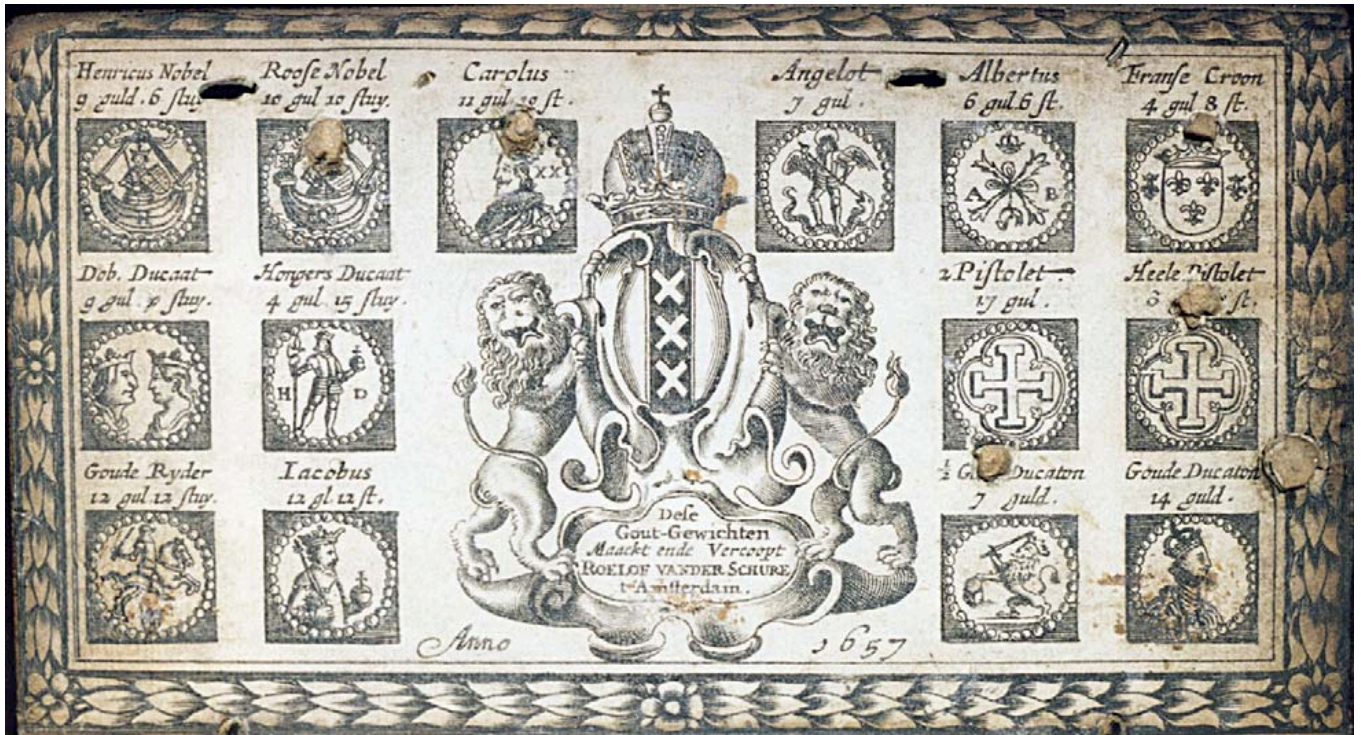 Henricus Nobel
9 guld. 6 stuy
Roose Nobel
10 gul 10 stuy.
Carolus
11 gul st.
XX
Angelot
7 gul.
Albertus
6 gul. 6 st.
A B
Franse Croon
4 gul 8 st.
Dob. Ducaat
9 gul stuy.
Hongers Ducaat
4 gul 15 stuy.
H D
2 Pistolet
17 gul.
Heele Pistolet
8 st.
Goude Ryder
12 gul 12 stuy.
Iacobus
12 gl 12 st.
½ Ducaton
7 guld.
Goude Ducaton
14 guld.
Dese
Gout-Gewichten
Maackt ende Vercoopt
ROELOF VANDER SCHURE
t'Amsterdam.
Anno 1657